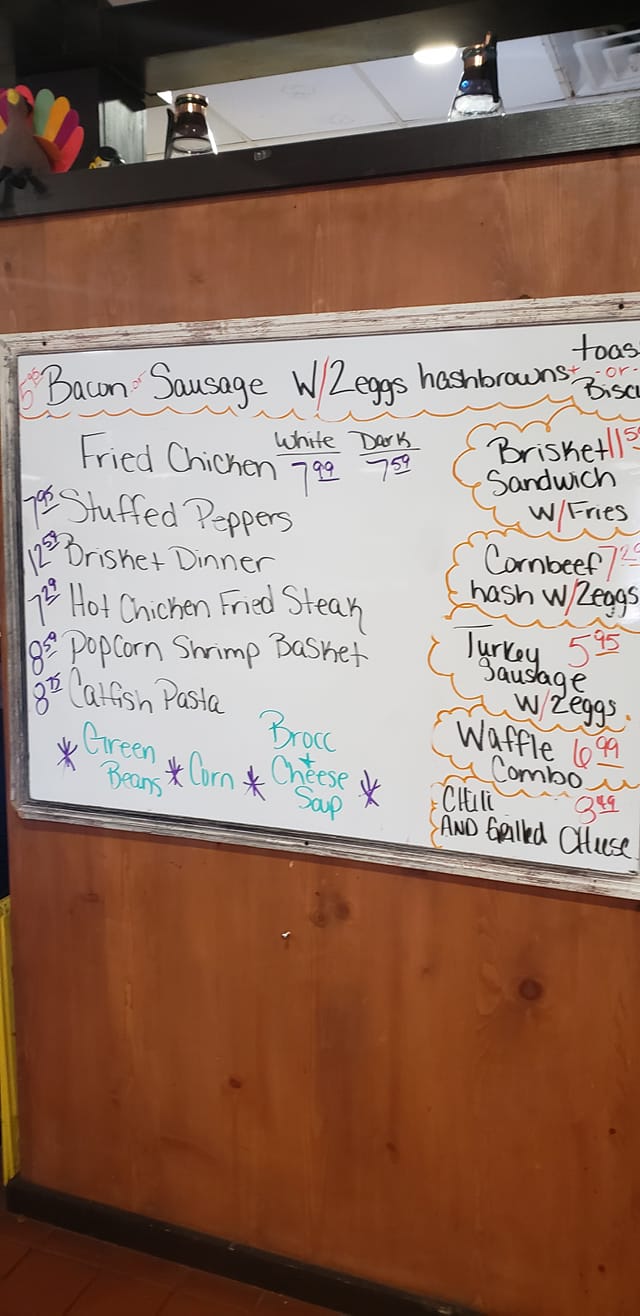 toas
5.95 Bacon or Sausage W/2eggs hashbrowns + -or-
Biscu
Fried Chicken White 7.99 Dark 7.59
7.95 Stuffed Peppers
12.59 Brisket Dinner
7.29 Hot Chicken Fried Steak
8.59 Popcorn Shrimp Basket
8.75 Catfish Pasta
* Green Beans * Corn * Brocc + Cheese Soup *
Brisket 11.5
Sandwich
W/Fries
Cornbeef 7.29
hash W/2eggs
Turkey 5.95
Sausage
W/2eggs.
Waffle 6.99
Combo
CHili 8.49
AND Grilled CHeese